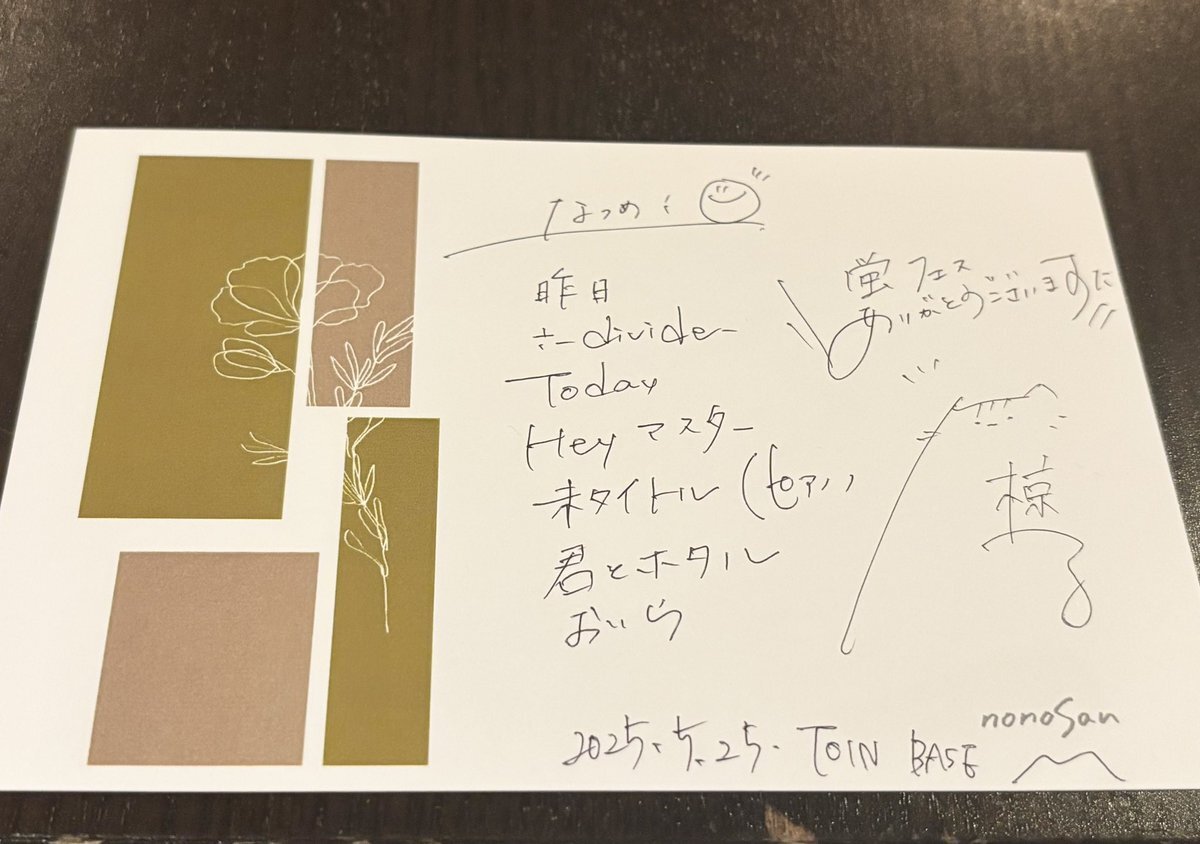 なつめ
昨日
さーdivider
Today
Hey マスター
未タイトル (ピアノ)
君とホタル
おいら
蛍フェス
ありがとうございますた
椋
2025.5.25. TOIN BASE
nonoSan